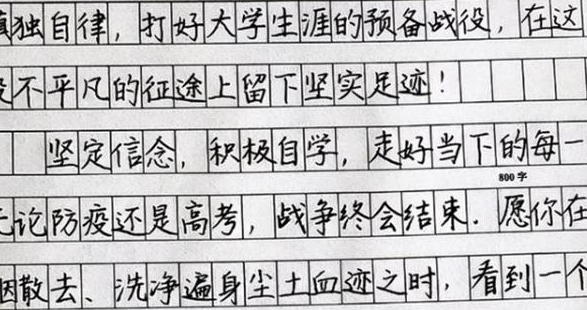 慎独自律，打好大学生涯的预备战役，在这
段不平凡的征途上留下坚实足迹！
坚定信念，积极自学，走好当下的每一
800字
无论防疫还是高考，战争终会结束．愿你在
烟散去、洗净遍身尘土血迹之时，看到一个